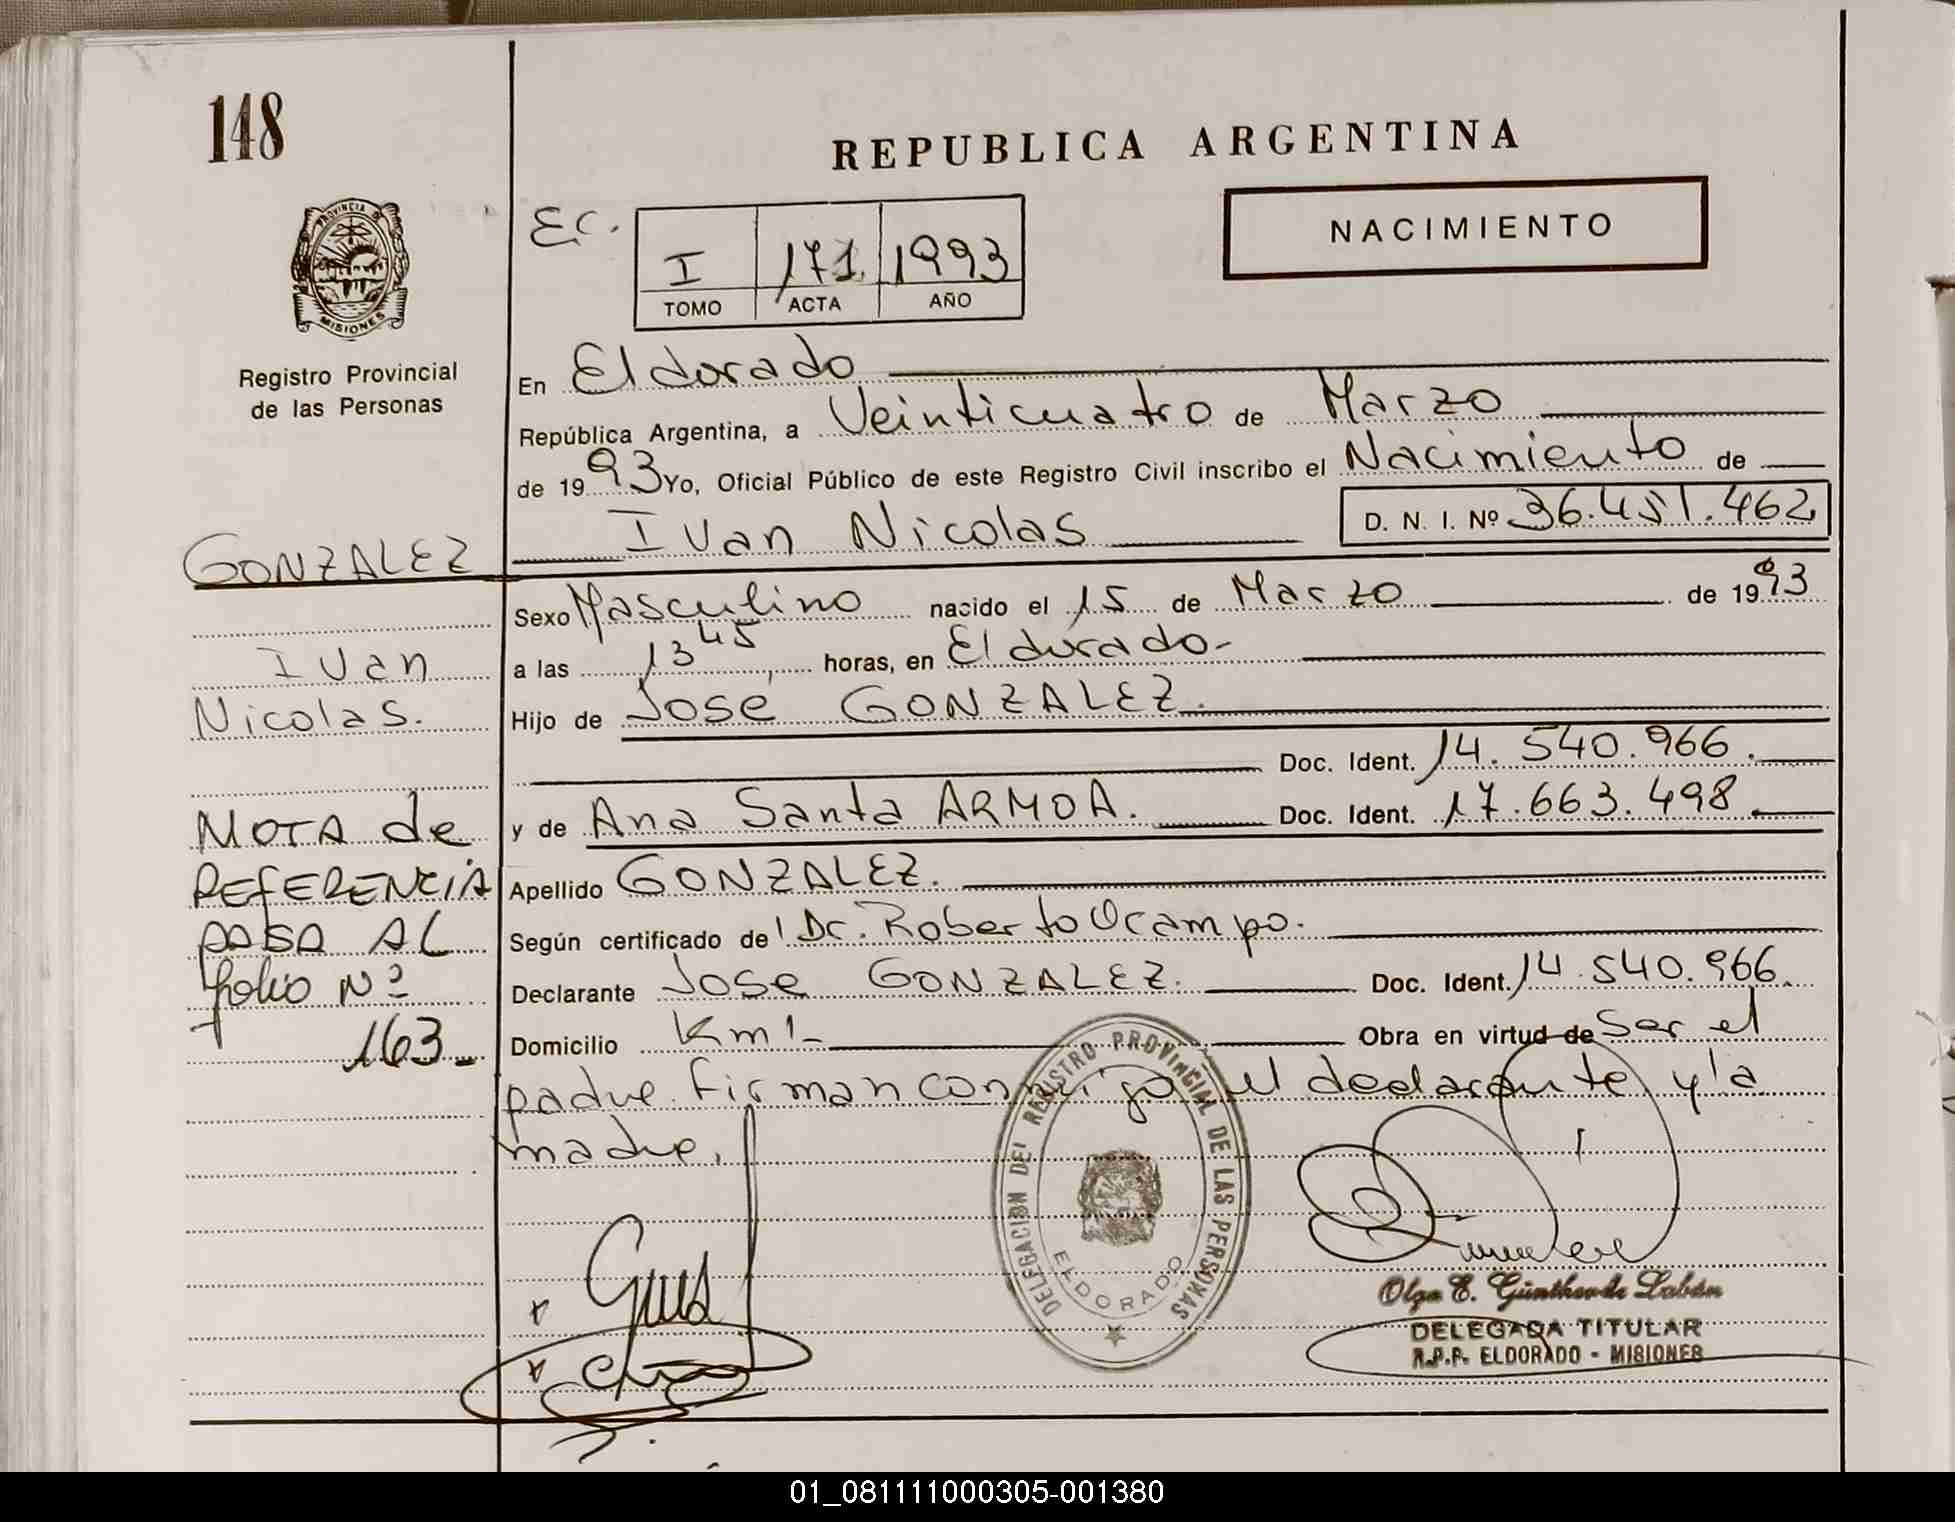 148
REPUBLICA ARGENTINA
PROVINCIA D
MISIONES
Registro Provincial
de las Personas
EC.
I 171 1993
TOMO ACTA AÑO
NACIMIENTO
En Eldorado
República Argentina, a Veinticuatro de Marzo
de 1993 Yo, Oficial Público de este Registro Civil inscribo el Nacimiento de
Ivan Nicolas D. N. I. Nº 36.451.462
GONZALEZ
Ivan
Nicolas.
Sexo Masculino nacido el 15 de Marzo de 1993
a las 13 45 horas, en Eldorado-
Hijo de Jose GONZALEZ.
Doc. Ident. 14.540.966.
y de Ana Santa ARMOA. Doc. Ident. 17.663.498
Apellido GONZALEZ.
Según certificado de Dr. Roberto Ocampo.
Declarante Jose GONZALEZ. Doc. Ident. 14.540.966.
Domicilio Km 1- Obra en virtud de Ser el
padre. Firman conmigo el declarante y la
madre.
NOTA de
REFERENCIA
PASA AL
folio Nº
163-
DELEGACION DEL REGISTRO PROVINCIAL DE LAS PERSONAS
ELDORADO
Olga E. Günther de Labán
DELEGADA TITULAR
R.P.P. ELDORADO - MISIONES
01_081111000305-001380